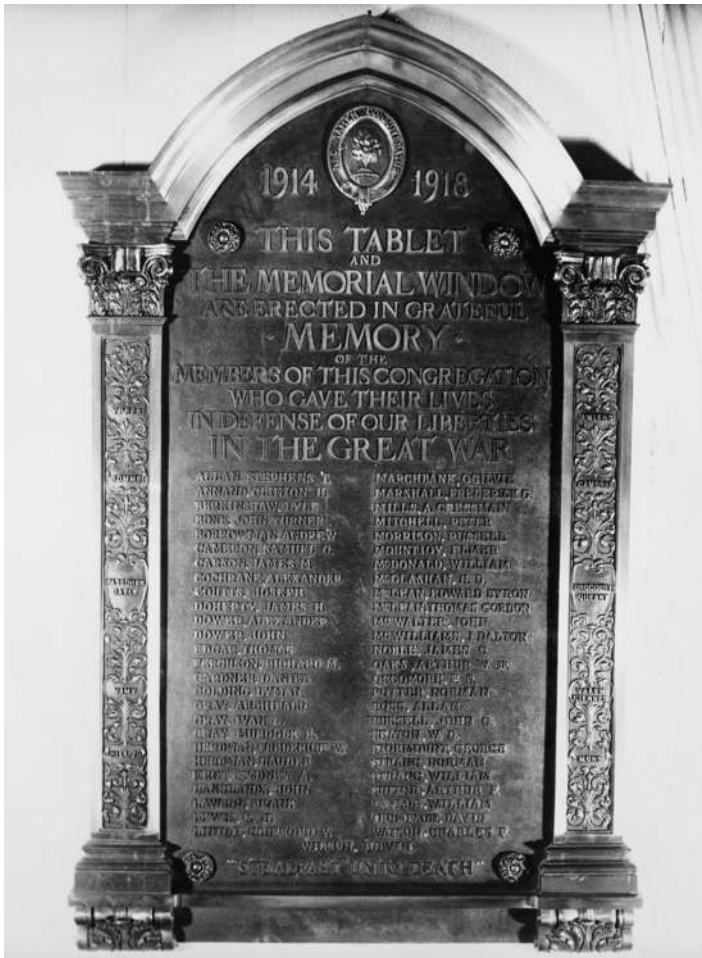 1914 1918
THIS TABLET
AND
THE MEMORIAL WINDOW
ARE ERECTED IN GRATEFUL
MEMORY
OF THE
MEMBERS OF THIS CONGREGATION
WHO GAVE THEIR LIVES
IN DEFENSE OF OUR LIBERTIES
IN THE GREAT WAR
ALLAN, STEPHENS T.
ANNAND, CLINTON H.
BERKINSHAW, LYLE
BONE, JOHN TURNER
BORROWMAN, ANDREW
CAMERON, SAMUEL G.
CARSON, JAMES M.
COCHRANE, ALEXANDER
COUTTS, JOSEPH
DOHERTY, JAMES H.
DOWER, ALEXANDER
DOWER, JOHN
EDGAR, THOMAS
FERGUSON, RICHARD M.
GARDNER, DANIEL
GOLDING, LYMAN
GRAY, ARCHIBALD
GRAY, IVAN
GRAY, MURDOCH
HERDMAN,
HERDMAN,
KENT, SYDNEY A.
LANGLANDS, JOHN
LAWSON, FRANK
LEWIS,
LINTOT, CLIFFORD V.
MARCHBANK, OGILVIE
MARSHALL, FREDERICK G.
MILLS, A.
MITCHELL, PETER
MORRISON, RUSSELL
MOUNTJOY, ELMER
McDONALD, WILLIAM
McGLASHAN, H. D.
McLEAN, EDWARD BYRON
McLEAN, THOMAS GORDON
McWALTER, JOHN
McWILLIAMS, J. DALTON
NOBLE, JAMES C.
OAKS, ARTHUR W. JR.
POTTER, NORMAN
ROSS, ALLAN
RUSSELL, JOHN G.
W. D.
GEORGE
STUART, NORMAN
WILLIAM
ARTHUR F.
WILLIAM
DAVID
WATSON, CHARLES F.
WILSON,
"STEADFAST UNTO DEATH"
YPRES
SOMME
PASSCHENDAELE
VIMY
HILL 70
AMIENS
CAMBRAI
DROCOURT
QUEANT
VALENCIENNES
MONS